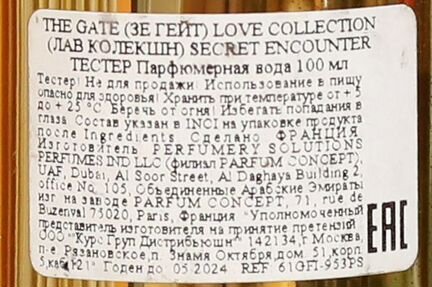 THE GATE (ЗЕ ГЕЙТ) LOVE COLLECTION
(ЛАВ КОЛЕКШН) SECRET ENCOUNTER
ТЕСТЕР Парфюмерная вода 100 мл
Тестер! Не для продажи! Использование в пищу
опасно для здоровья! Хранить при температуре от + 5
до + 25 °С. Беречь от огня! Избегать попадания в
глаза Состав указан в INCI на упаковке продукта
после Ingredients Сделано ФРАНЦИЯ
Изготовитель PERFUMERY SOLUTIONS
PERFUMES IND LLC (филиал PARFUM CONCEPT),
UAF, Dubai, Al Soor Street, Al Daghaya Building 2,
office No. 105, Объединенные Арабские Эмираты
изг на заводе PARFUM CONCEPT, 71, rue de
Buzenval 75020, Paris, Франция "Уполномоченный
представитель изготовителя на принятие претензий
ООО "Курс Груп Дистрибьюшн" 142134, г Москва,
п-е. Рязановское, п. Знамя Октября, дом 51, корп.
5, каб 21" Годен до 05 2024 REF 61GFT-953PS
EAC